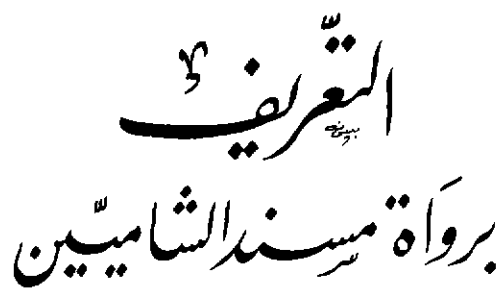 التعّريف
بروَاة مسند الشاميّين